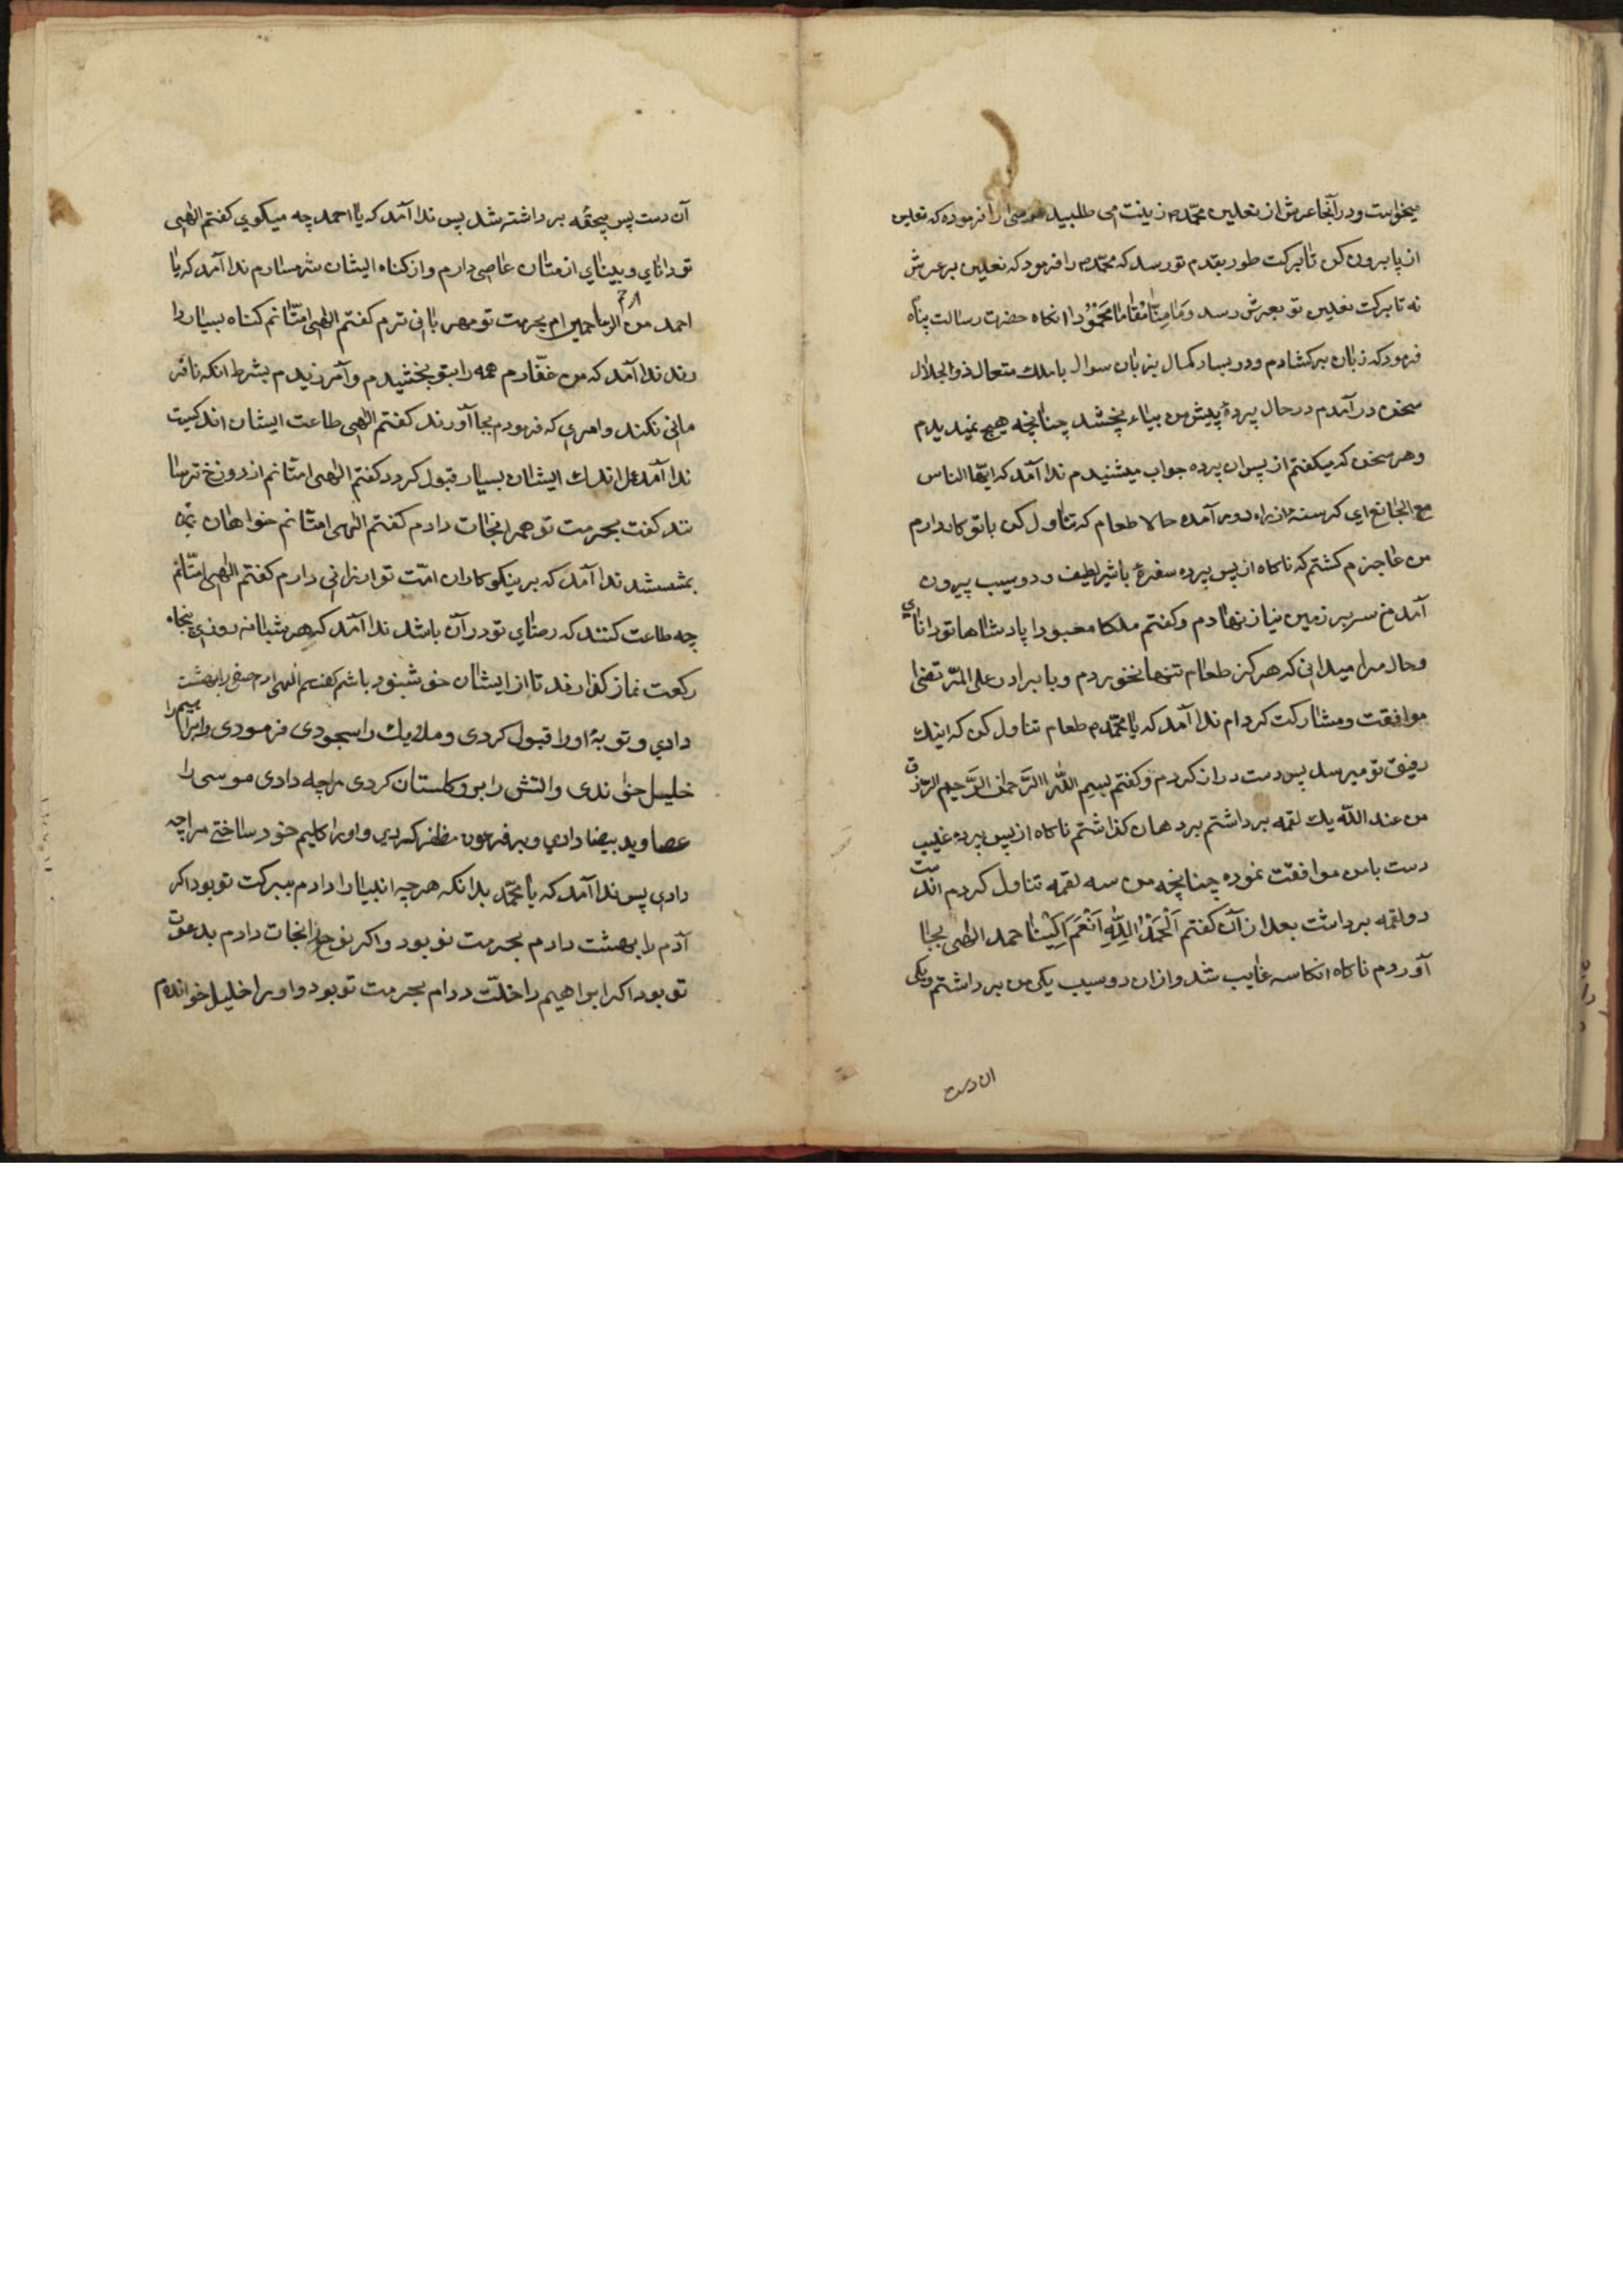 میخواست و در آنجا عرش از نعلین محمّدم زینت می طلبید موسی را فرموده که نعلین
از پا بیرون کن تا برکت طور بقدم تو رسد که محمّدم را فرمود که نعلین بر عرش
نه تا برکت نعلین تو بعرش رسد وَمَا مِنّٰا مَقٰامًا مَحْمُوْدا انکاه حضرت رسالت پناه
فرمود که زبان برکشادم ودر بساد کمال بزبان سوال با ملک متعال ذوالجلال
سخن در آمدم در حال پردهٔ پیش من بیاء چناپخه هیچ نمیدیدم
وهر سخن که میکفتم از پس ان پرده جواب میشنیدم ندا آمد که ایّها الناس
الجائع ای کرسنهٔ از راه دور آمده حالا طعام که تناول کن با تو کار دارم
من عاجزم کشتم که ناکاه از پس پرده سفرهٔ با شیر لطیف و دو سیب پیرون
آمد من سر بر زمین نیاز نهادم وکفتم ملکا معبودا پادشاها تو دانای
وحال مرا میدانی که هرکز طعام تنها نخوردم وبا برادر علی المرتضی
موافقت ومشارکت کردام ندا آمد که یا محمّدم طعام تناول کن که اینک
رفیق تو میرسد پس دست دراز کردم وکفتم بسیم اللّٰه الرَّحمٰن الرَّحیم الرزق
من عند اللّٰه یک لقمه برداشتم بر دهان کذاشتم ناکاه از پس پرده غیب
دست با من موافقت نموده چناپخه من سه لقمه تناول کردم اندست
دو لقمه برداشت بعد از آن کفتم اَلْحَمْدُ الِلّٰهِ حمد الٰهی بجا
آوردم ناکاه انکاسه غایب شد وازان دو سیب یکی من برداشتم ویکی
ان دست
آن دست پس برداشته شد پس ندا آمد که یا احمد چه میکوی کفتم الٰهی
تو دانای وبینای از متان عاصی دارم واز کناه ایشان شرمسارم ندا آمد که یا
احمد من ارحم الرحمین ام بحرمت تو مهربانی ترم کفتم الٰهی امتّانم کناه بسیار دا
رند ندا آمد که من غفّارم همه را بتو بخشیدم وآمرزیدم بشرط انکه نافر
مانی نکنند وامری که فرمودم بجا آورند کفتم الٰهی طاعت ایشان اندکیست
ندا آمد اندک ایشان بسیار قبول کردد کفتم الٰهی امتانم از دوزخ ترسا
نند کفت بحرمت تو همه را نجات دادم کفتم الٰهی امتانم خواهان
بهشتند ندا آمد که بر نیکوکاران امّت تو ارزانی دارم کفتم الٰهی امتّانم
چه طاعت کنند که رضای تو در آن باشد ندا آمد که هر شبانه روزی پنجاه
رکعت نماز کذارند تا از ایشان خوشنود باشم کفتم الهی ادم صفی را بهشت
دادی و توبهٔ اورا قبول کردی و ملایک را سجودی فرمودی وابراهیم را
خلیل خواندی واتش را برو کلستان کردی مرا چه دادی موسی را
عصا وید بیضا دادی وبر فرعون مظفر کردی واورا کلیم خود ساختی مرا چه
دادی پس ندا آمد که یا محمّد بدانکه هرچه انبیا را دادم ببرکت تو بود اکر
آدم را بهشت دادم بحرمت تو بود واکر نوح را نجات دادم بدعوت
تو بود اکر ابراهیم را خلّت دارم بحرمت تو بود واورا خلیل خواندم